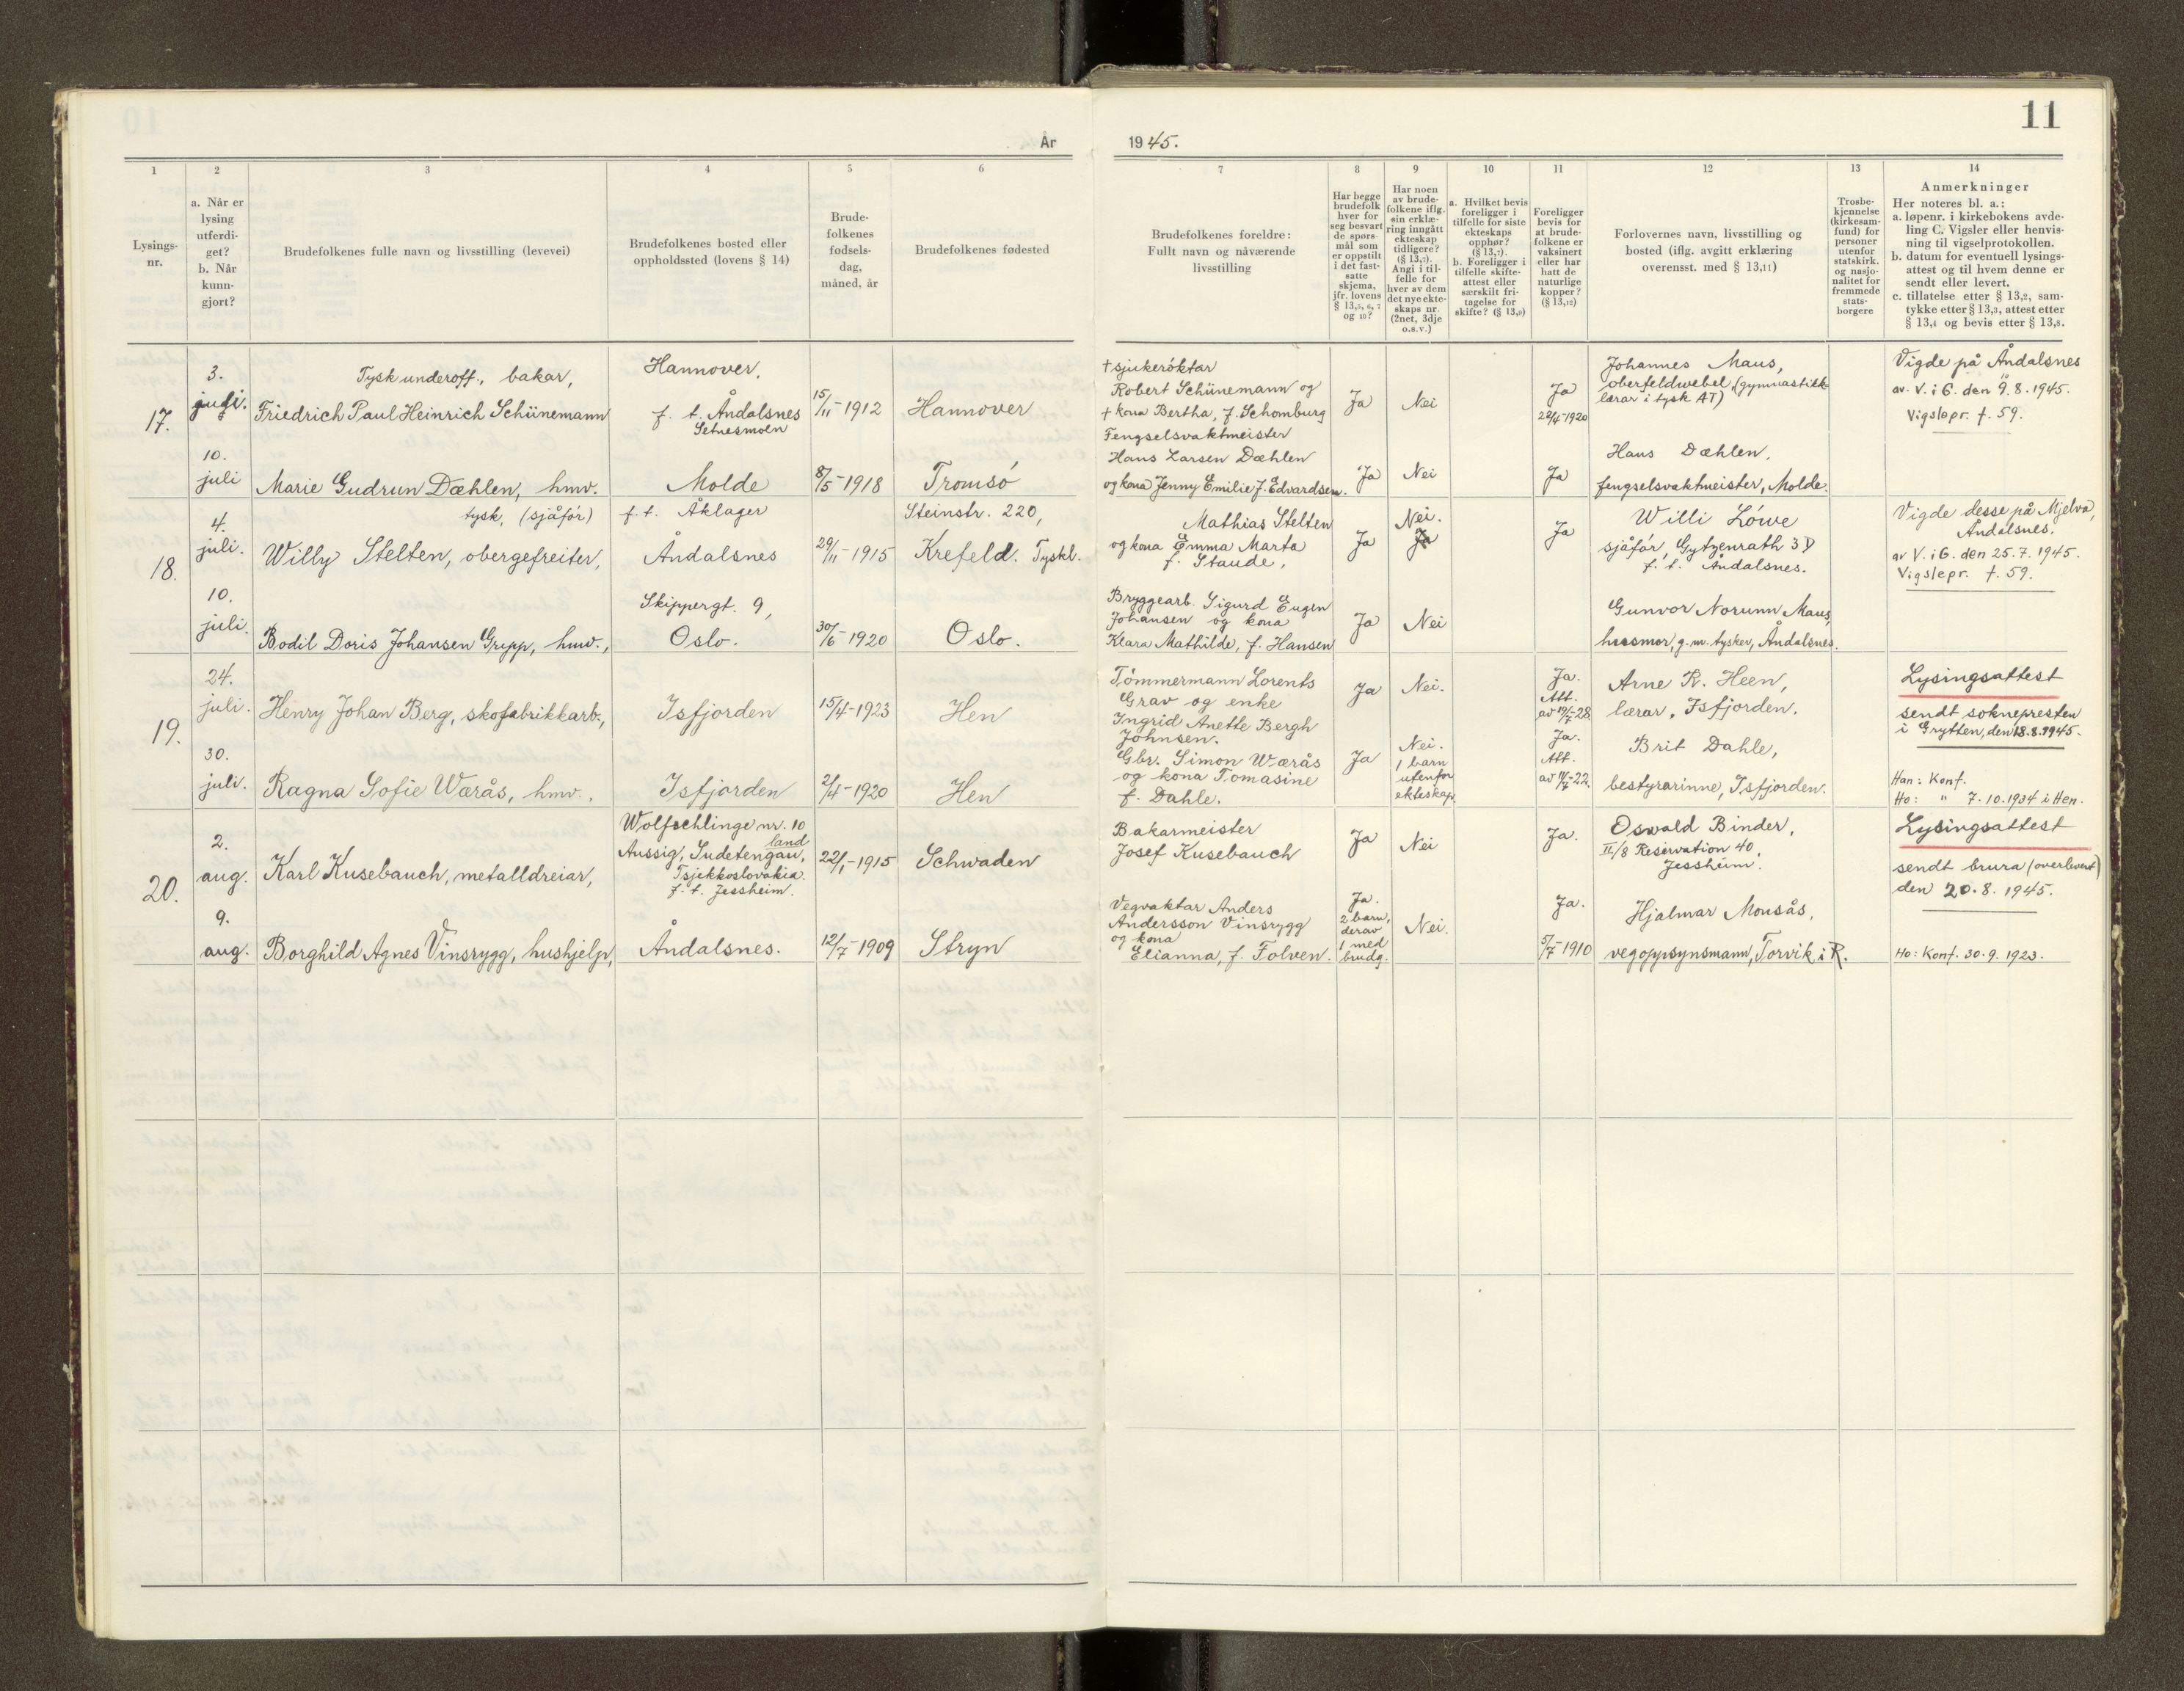 11
År 1945.
1
2
3
4
5
6
7
8
9
10
11
12
13
14
Lysings-
nr.
a. Når er
lysing
utferdi-
get?
b. Når
kunn-
gjort?
Brudefolkenes fulle navn og livsstilling (levevei)
Brudefolkenes bosted eller
oppholdssted (lovens § 14)
Brude-
folkenes
fødsels-
dag,
måned, år
Brudefolkenes fødested
Brudefolkenes foreldre:
Fullt navn og nåværende
livsstilling
Har begge
brudefolk
hver for
seg besvart
de spørs-
mål som
er oppstilt
i det fast-
satte
skjema,
jfr. lovens
§ 13,5, 6, 7
og 10?
Har noen
av brude-
folkene iflg.
sin erklæ-
ring inngått
ekteskap
tidligere?
(§ 13,7).
Angi i til-
felle for
hver av dem
det nye ekte-
skaps nr.
(2net, 3dje
o.s.v.)
a. Hvilket bevis
foreligger i
tilfelle for siste
ekteskaps
opphør?
(§ 13,7).
b. Foreligger i
tilfelle skifte-
attest eller
særskilt fri-
tagelse for
skifte? (§ 13,9)
Foreligger
bevis for
at brude-
folkene er
vaksinert
eller har
hatt de
naturlige
kopper?
(§ 13,12)
Forlovernes navn, livsstilling og
bosted (iflg. avgitt erklæring
overensst. med § 13,11)
Trosbe-
kjennelse
(kirkesam-
fund) for
personer
utenfor
statskirk.
og nasjo-
nalitet for
fremmede
stats-
borgere
Anmerkninger
Her noteres bl. a.:
a. løpenr. i kirkebokens avde-
ling C. Vigsler eller henvis-
ning til vigselprotokollen.
b. datum for eventuell lysings-
attest og til hvem denne er
sendt eller levert.
c. tillatelse etter § 13,2, sam-
tykke etter § 13,3, attest etter
§ 13,4 og bevis etter § 13,8.
17.
3.
juli.
Tysk underoff., bakar,
Friedrich Paul Heinrich Schünemann
Hannover,
f. t. Åndalsnes
Setnesmoen
15/11-1912
Hannover
† sjukerøktar
Robert Schünemann og
† kona Bertha, f. Schomburg
Ja
Nei
Ja
22/4-1920
Johannes Maus,
oberfeldwebel (gymnastikk
lærar i tysk AT)
Vigde på Åndalsnes
av. V. i G. den 9.8.1945.
Vigslepr. f. 59.
10.
juli
Marie Gudrun Dæhlen, hmv.
Molde
8/5-1918
Tromsø
Fengselsvaktmeister
Hans Larsen Dæhlen
og kona Jenny Emilie f. Edvardsen.
Ja
Nei
Ja
Hans Dæhlen,
fengselsvaktmeister, Molde.
18.
4.
juli.
tysk, (sjåfør)
Willy Stelten, obergefreiter,
f. t. Åklager
Åndalsnes
29/11-1915
Steinstr. 220,
Krefeld. Tyskl.
Mathias Stelten
og kona Emma Marta
f. Staude,
Ja
Nei.
Ja
Ja
Willi Löwe
sjåfør, Gytzenrath 3D
f. t. Åndalsnes.
Vigde desse på Mjelva,
Åndalsnes,
av V. i G. den 25.7.1945.
Vigslepr. f. 59.
10.
juli.
Bodil Doris Johansen Gripp, hmv.,
Skippergt. 9,
Oslo.
30/6-1920
Oslo.
Bryggearb. Sigurd Eugen
Johansen og kona
Klara Mathilde, f. Hansen
Ja
Nei
Gunvor Norunn Maus,
husmor, g. m. tysker, Åndalsnes.
19.
24.
juli.
Henry Johan Berg, skofabrikkarb.,
Isfjorden
15/4-1923
Hen
Tømmermann Lorents
Grav og enke
Ingrid Anette Bergh
Johnsen.
Ja
Nei.
Ja.
Att.
av 19/7-28
Arne R. Heen,
lærar, Isfjorden.
Lysingsattest
sendt soknepresten
i Grytten, den 18.8.1945.
30.
juli.
Ragna Sofie Wærås, hmv.,
Isfjorden
2/4-1920
Hen
Gbr. Simon Wærås
og kona Tomasine
f. Dahle.
Ja
Nei.
1 barn
utenfor
ekteskap.
Ja.
Att.
av 11/7-22.
Brit Dahle,
bestyrarinne, Isfjorden.
Han: Konf.
Ho: " 7.10.1934 i Hen.
20.
2.
aug.
Karl Kusebauch, metalldreiar,
Wolfschlinge nr. 10
land
Aussig, Sudetengau,
Tsjekkoslovakia.
f. t. Jessheim.
22/1-1915
Schwaden
Bakarmeister
Josef Kusebauch
Ja
Nei
Ja.
Oswald Binder,
II/8 Reservation 40,
Jessheim.
Lysingsattest
sendt brura (overlevert)
den 20.8.1945.
9.
aug.
Borghild Agnes Vinsrygg, hushjelp,
Åndalsnes.
12/7-1909
Stryn
Vegvaktar Anders
Andersson Vinsrygg
og kona
Elianna, f. Folven.
Ja.
2 barn,
derav
1 med
brudg.
Nei.
Ja.
5/7-1910
Hjalmar Monsås,
vegoppsynsmann, Torvik i R.
Ho: Konf. 30.9.1923.